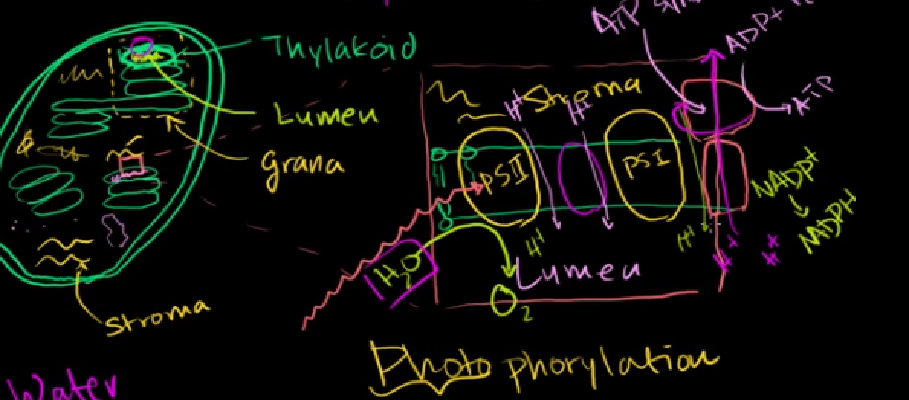 Thylakoid
Lumen
grana
Stroma
Water
ATP
ADP+
ATP
Stroma
H+
H+
PSII
PSI
NADP+
NADPH
H+
H+
H+
H2O
Lumen
O2
Photo phorylation